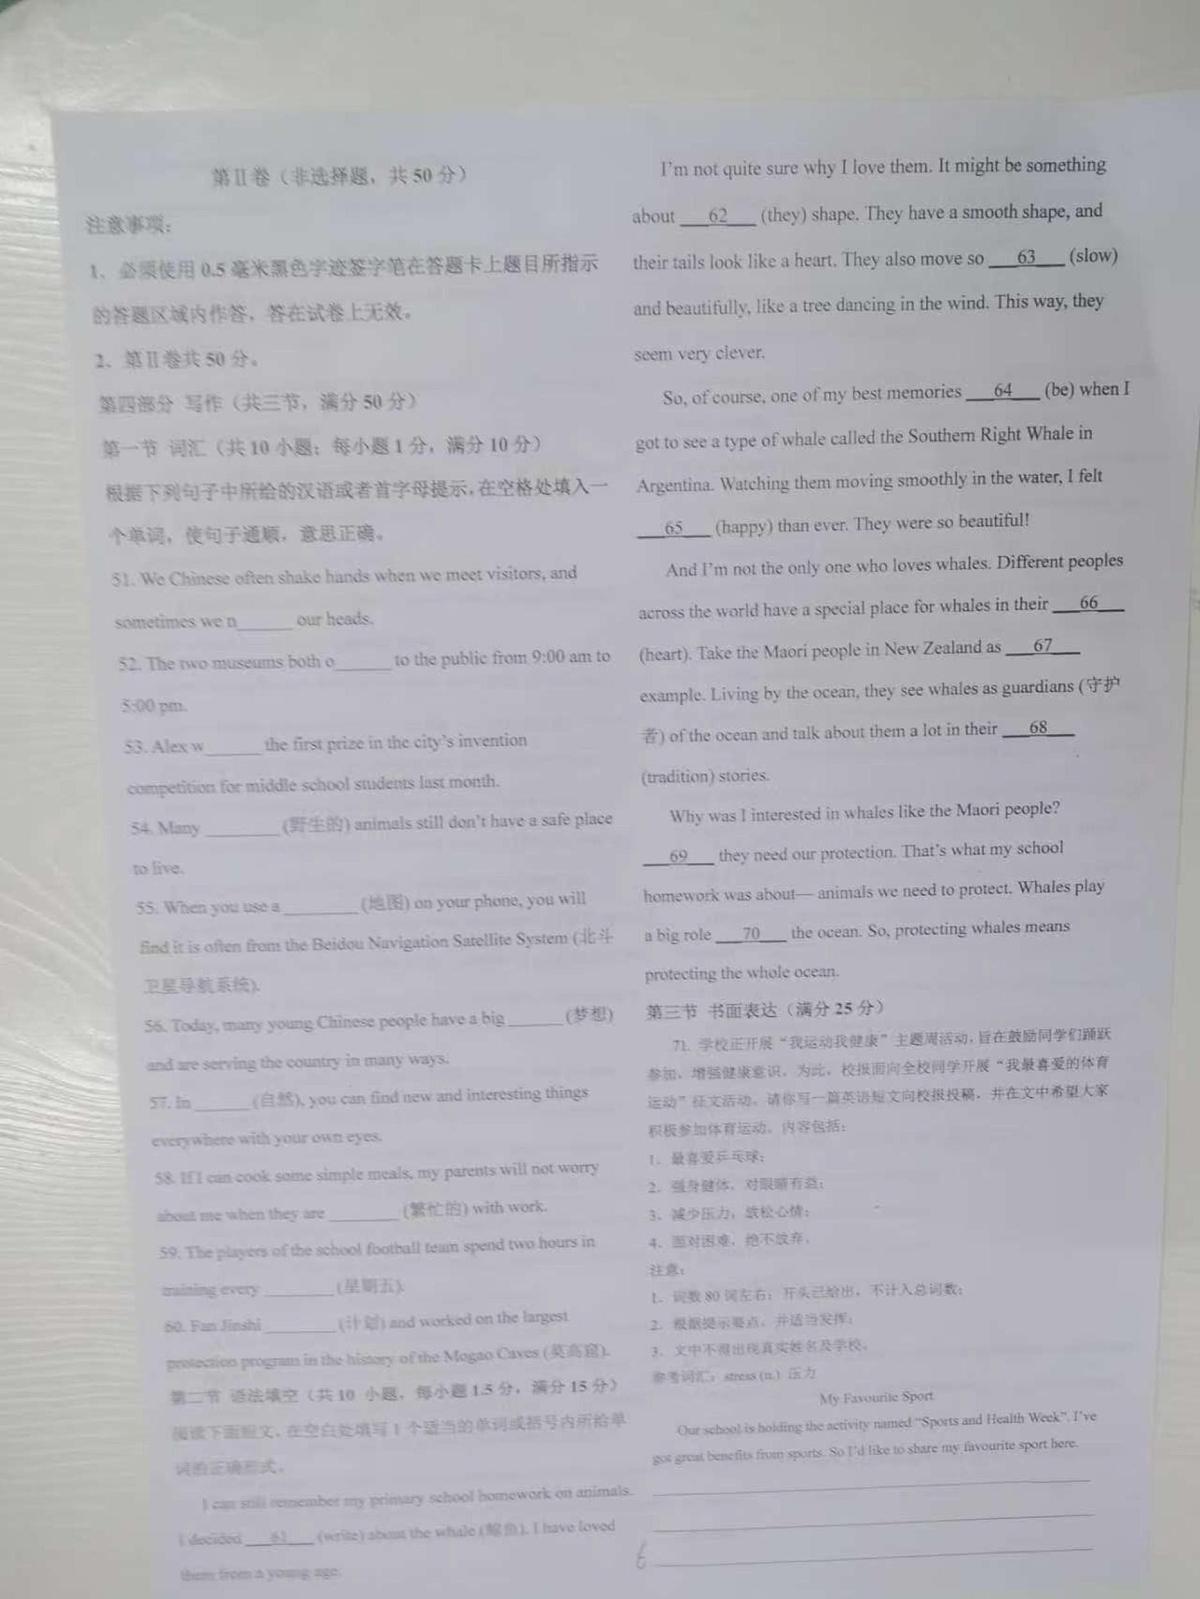 第Ⅱ卷（非选择题，共 50 分）
注意事项：
1、必须使用 0.5 毫米黑色字迹签字笔在答题卡上题目所指示
的答题区域内作答，答在试卷上无效。
2、第Ⅱ卷共 50 分。
第四部分 写作（共三节，满分 50 分）
第一节 词汇（共 10 小题；每小题 1 分，满分 10 分）
根据下列句子中所给的汉语或者首字母提示，在空格处填入一
个单词，使句子通顺，意思正确。
51. We Chinese often shake hands when we meet visitors, and
sometimes we n______ our heads.
52. The two museums both o______ to the public from 9:00 am to
5:00 pm.
53. Alex w______ the first prize in the city's invention
competition for middle school students last month.
54. Many ________ (野生的) animals still don't have a safe place
to live.
55. When you use a ________ (地图) on your phone, you will
find it is often from the Beidou Navigation Satellite System (北斗
卫星导航系统).
56. Today, many young Chinese people have a big ______ (梦想)
and are serving the country in many ways.
57. In ______ (自然), you can find new and interesting things
everywhere with your own eyes.
58. If I can cook some simple meals, my parents will not worry
about me when they are ________ (繁忙的) with work.
59. The players of the school football team spend two hours in
training every ________ (星期五).
60. Fan Jinshi ________ (计划) and worked on the largest
protection program in the history of the Mogao Caves (莫高窟).
第二节 语法填空（共 10 小题，每小题 1.5 分，满分 15 分）
阅读下面短文，在空白处填写 1 个适当的单词或括号内所给单
词的正确形式。
I can still remember my primary school homework on animals.
I decided ___61___ (write) about the whale (鲸鱼). I have loved
them from a young age.
I'm not quite sure why I love them. It might be something
about ___62___ (they) shape. They have a smooth shape, and
their tails look like a heart. They also move so ___63___ (slow)
and beautifully, like a tree dancing in the wind. This way, they
seem very clever.
So, of course, one of my best memories ___64___ (be) when I
got to see a type of whale called the Southern Right Whale in
Argentina. Watching them moving smoothly in the water, I felt
___65___ (happy) than ever. They were so beautiful!
And I'm not the only one who loves whales. Different peoples
across the world have a special place for whales in their ___66___
(heart). Take the Maori people in New Zealand as ___67___
example. Living by the ocean, they see whales as guardians (守护
者) of the ocean and talk about them a lot in their ___68___
(tradition) stories.
Why was I interested in whales like the Maori people?
___69___ they need our protection. That's what my school
homework was about— animals we need to protect. Whales play
a big role ___70___ the ocean. So, protecting whales means
protecting the whole ocean.
第三节 书面表达（满分 25 分）
71. 学校正开展“我运动我健康”主题周活动，旨在鼓励同学们踊跃
参加，增强健康意识。为此，校报面向全校同学开展“我最喜爱的体育
运动”征文活动。请你写一篇英语短文向校报投稿，并在文中希望大家
积极参加体育运动。内容包括：
1．最喜爱乒乓球；
2．强身健体，对眼睛有益；
3．减少压力，放松心情；
4．面对困难，绝不放弃。
注意：
1．词数 80 词左右；开头已给出，不计入总词数；
2．根据提示要点，并适当发挥；
3．文中不得出现真实姓名及学校。
参考词汇：stress (n.) 压力
My Favourite Sport
Our school is holding the activity named “Sports and Health Week”. I've
got great benefits from sports. So I'd like to share my favourite sport here.
6